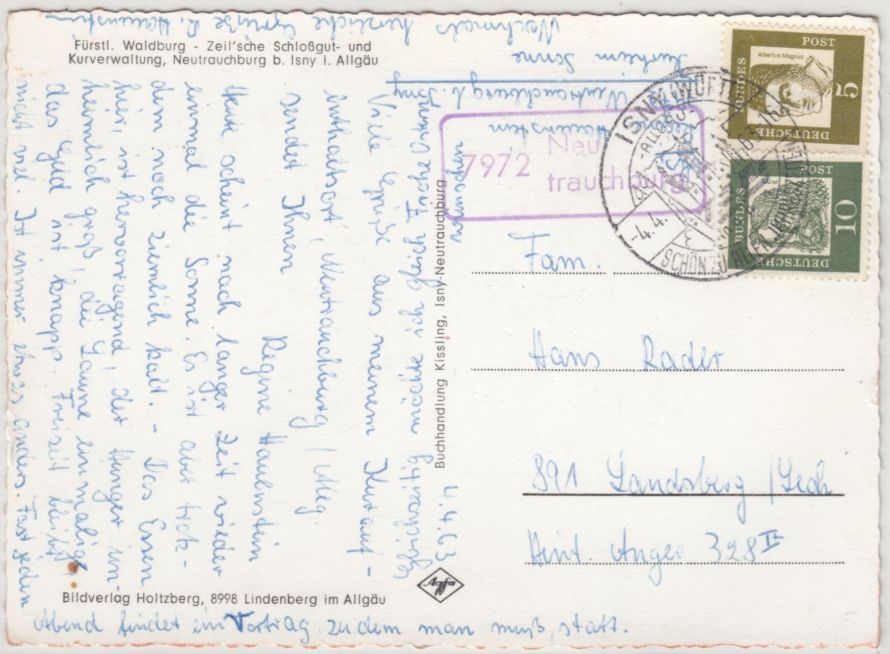 Fürstl. Waldburg - Zeil'sche Schloßgut- und
Kurverwaltung, Neutrauchburg b. Isny i. Allgäu
4.4.63
Viele Grüße aus meinem Kurauf-
enthaltsort, Neutrauchburg / Allg.
sendet Ihnen
Regine Hauenstein
Heute scheint nach langer Zeit wieder
einmal die Sonne. Es ist aber trotz-
dem noch ziemlich kalt. - Das Essen
hier, ist hervorragend, der Hunger un-
heimlich groß, die Laune einmalig
das Geld ist knapp. Freizeit bleibt
nicht viel. Ist immer etwas anders. Fast jeden
Abend findet ein Vortrag, zu dem man muß, statt.
möchte ich gleich Frohe Ostern
wünschen
Nochmals herzliche Grüße R. Hauenstein
Kurheim Sonne
Neutrauchburg b. Isny
Hauenstein
Buchhandlung Kissling, Isny-Neutrauchburg
Agfa
Bildverlag Holtzberg, 8998 Lindenberg im Allgäu
7972 Neu
trauchburg
ISNY (WÜRTT
-4.4.63
SCHÖN ZU ALLEN JAHRESZEITEN
Albertus Magnus
DEUTSCHE BUNDESPOST
5
DEUTSCHE BUNDESPOST
10
Fam.
Hans Rader
891 Landsberg / Lech
Hint. Anger 328 II